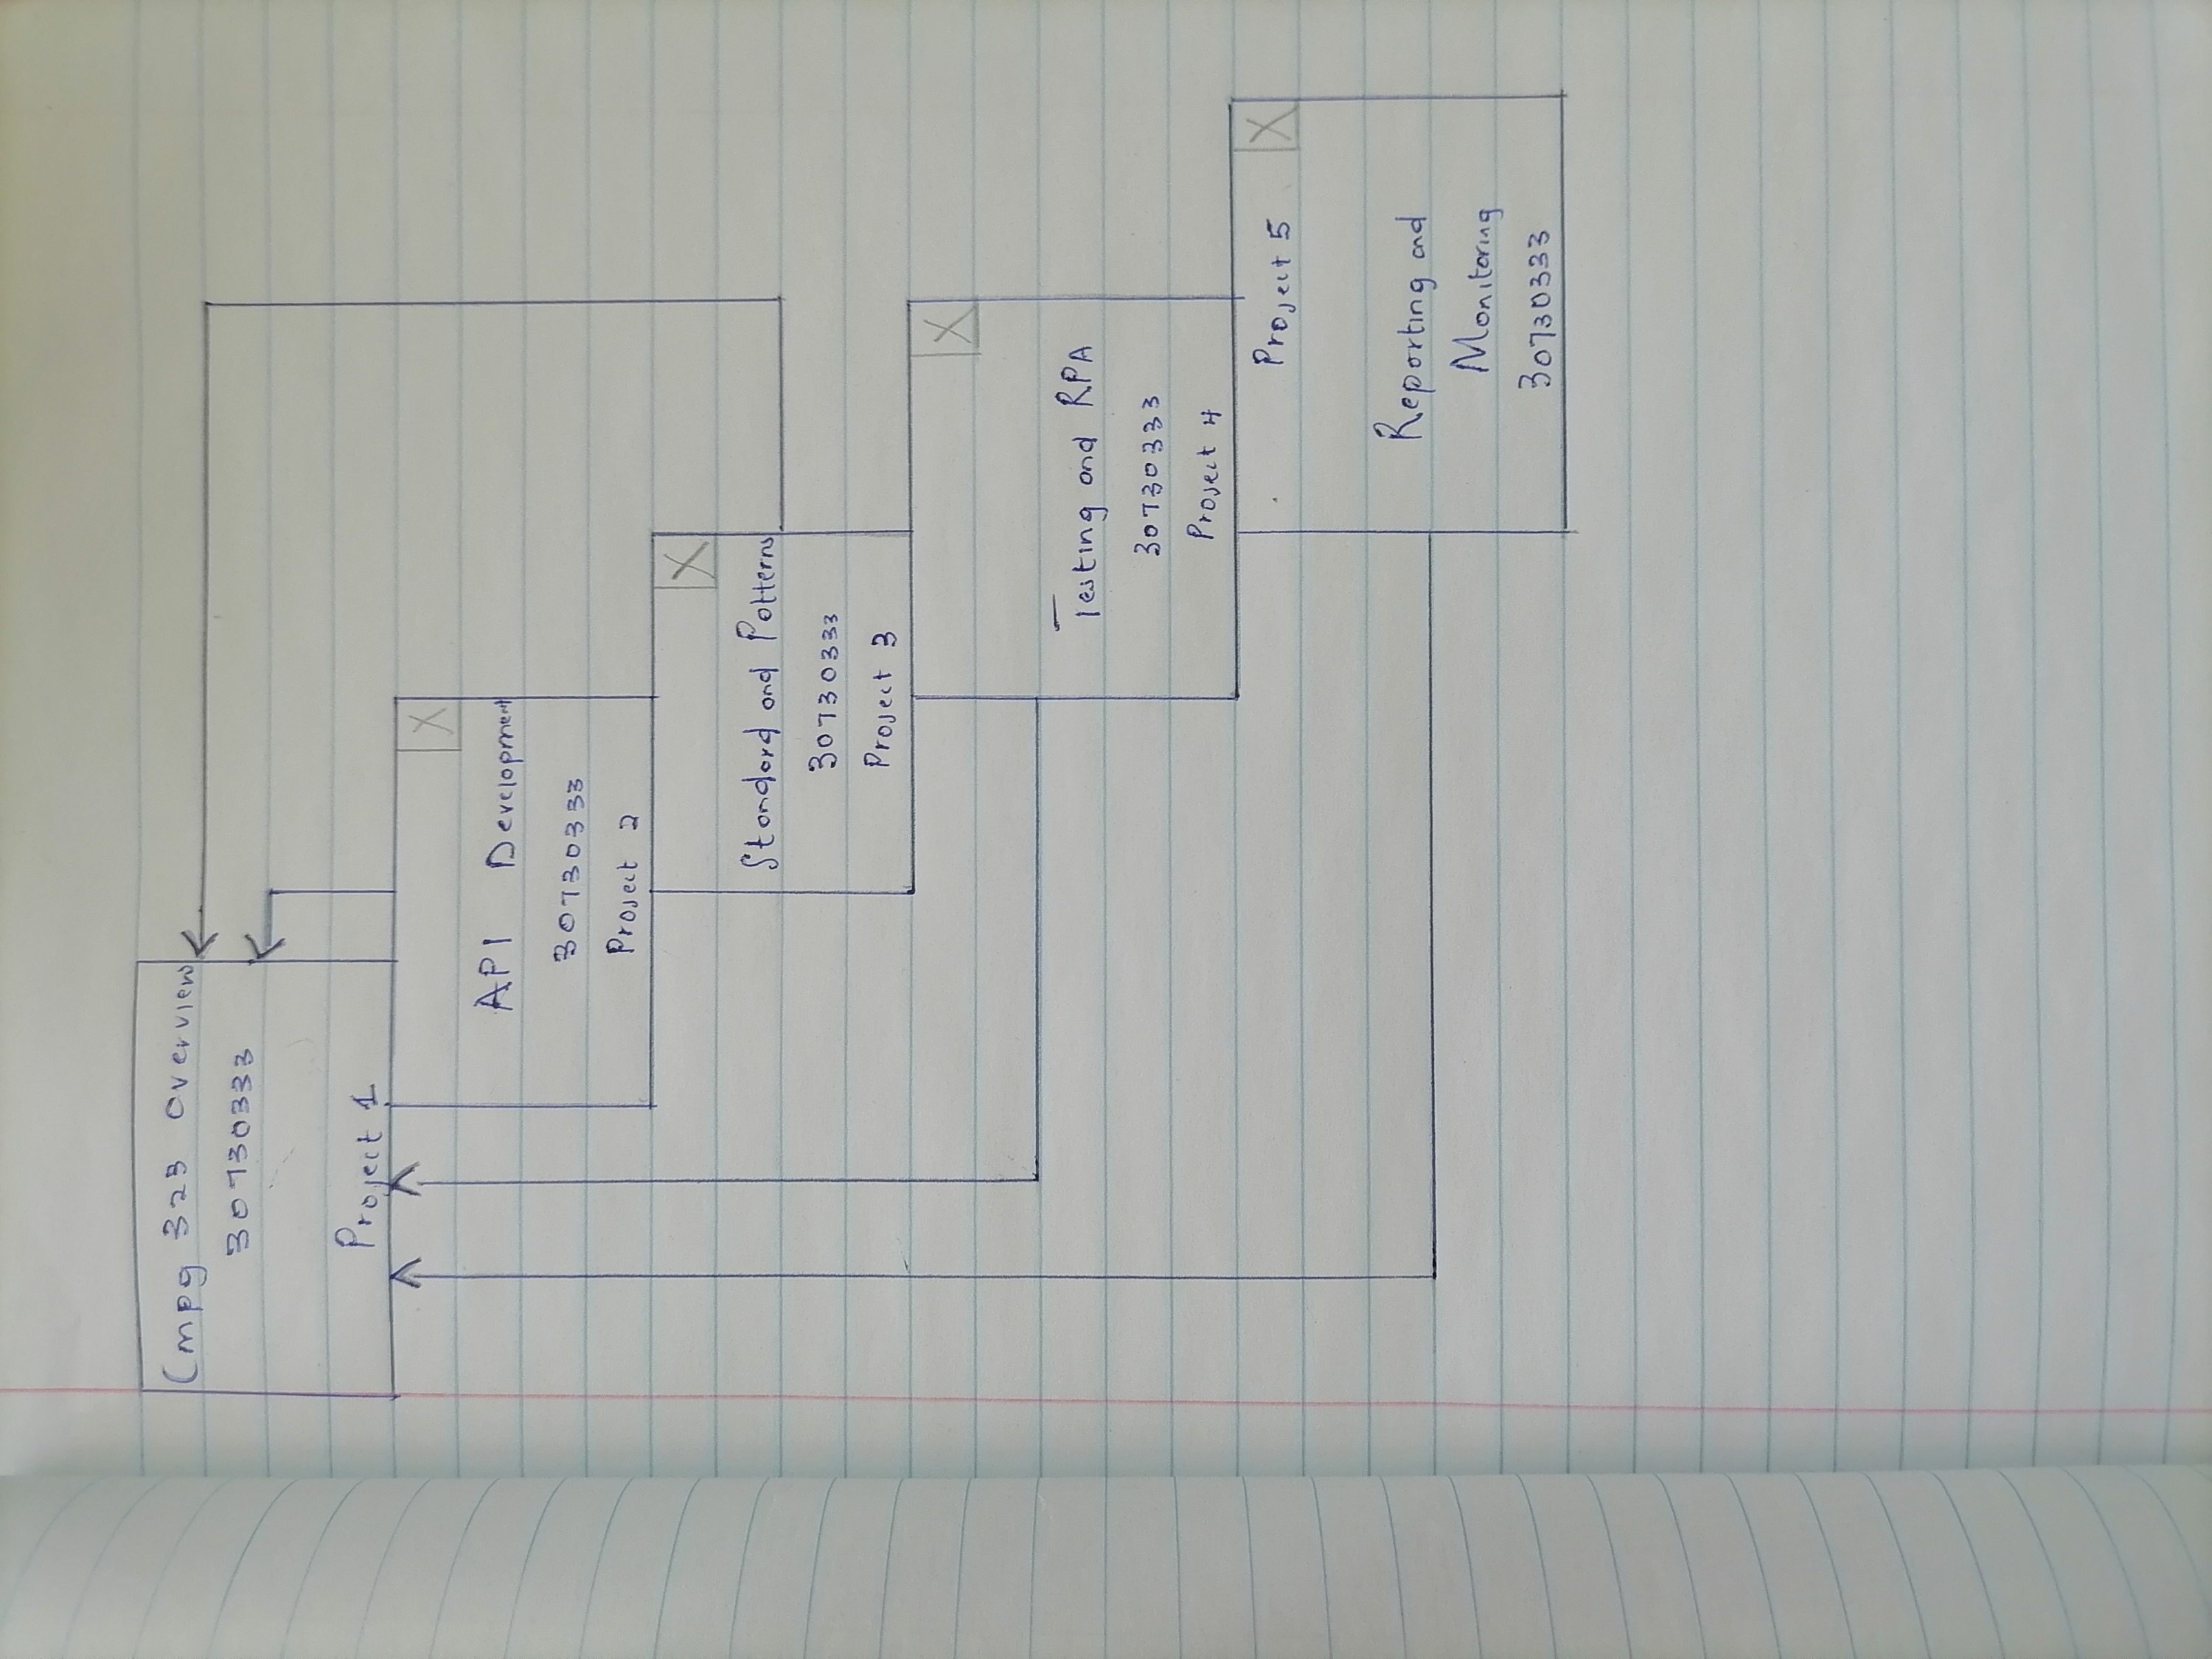 Cmpg 323 Overview
30730333
Project 1
X
API Development
30730333
Project 2
X
Standard and Patterns
30730333
Project 3
X
Testing and RPA
30730333
Project 4
Project 5 X
Reporting and
Monitoring
30730333